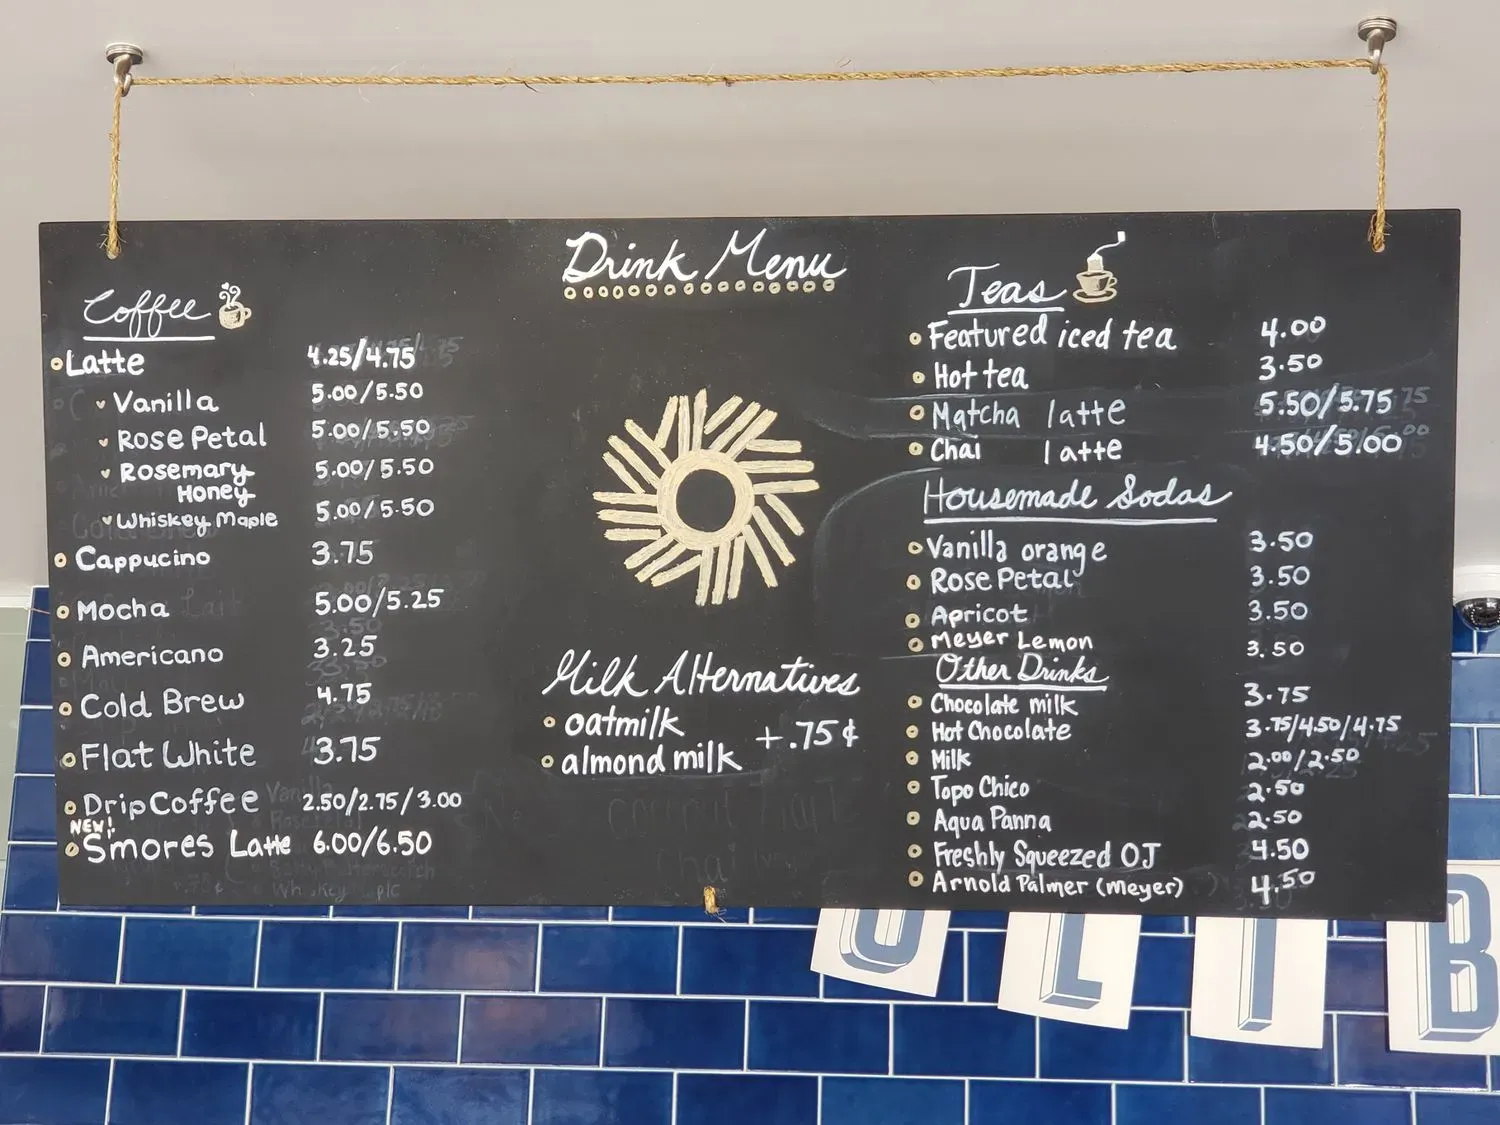 Drink Menu
Coffee
Latte 4.25/4.75
Vanilla 5.00/5.50
Rose Petal 5.00/5.50
Rosemary
Honey 5.00/5.50
Whiskey Maple 5.00/5.50
Cappucino 3.75
Mocha 5.00/5.25
Americano 3.25
Cold Brew 4.75
Flat White 3.75
Drip Coffee 2.50/2.75/3.00
NEW!
Smores Latte 6.00/6.50
Milk Alternatives
oatmilk
almond milk +.75¢
Teas
Featured iced tea 4.00
Hot tea 3.50
Matcha latte 5.50/5.75
Chai latte 4.50/5.00
Housemade Sodas
Vanilla orange 3.50
Rose Petal 3.50
Apricot 3.50
Meyer Lemon 3.50
Other Drinks
Chocolate milk 3.75
Hot Chocolate 3.75/4.50/4.75
Milk 2.00/2.50
Topo Chico 2.50
Aqua Panna 2.50
Freshly Squeezed OJ 4.50
Arnold Palmer (meyer) 4.50